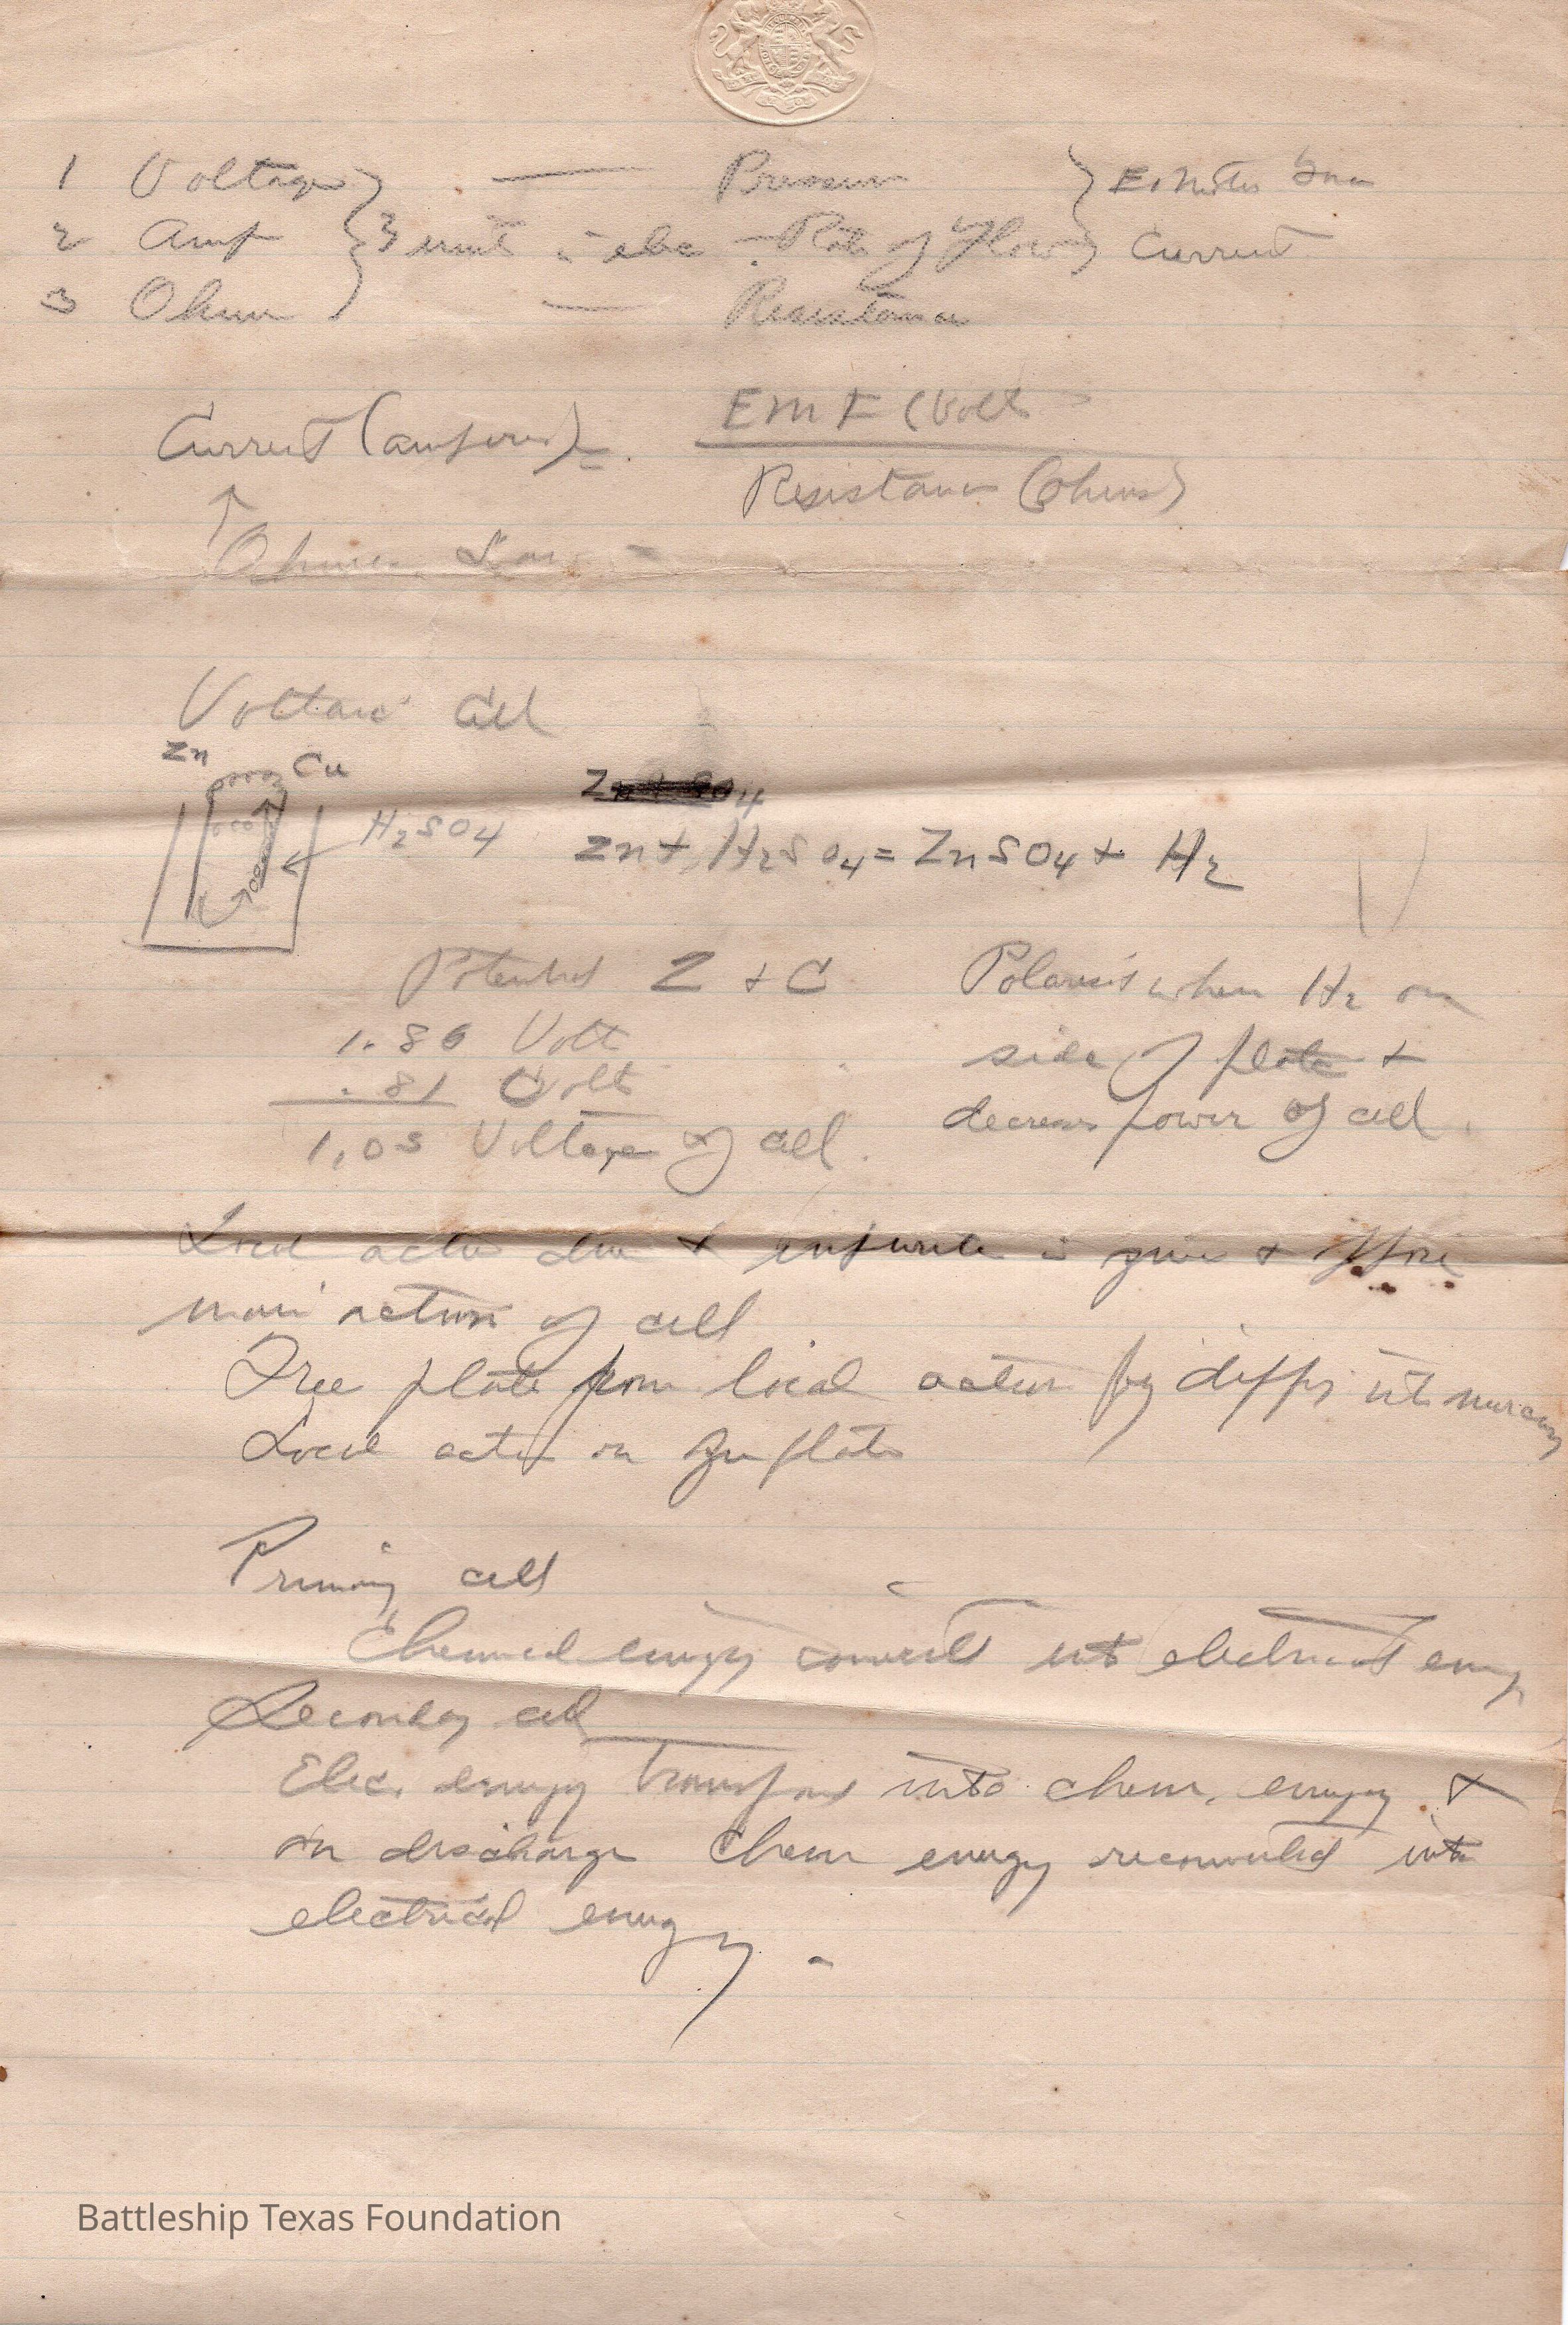 1 Voltage — Pressure
2 Amp 3 unit elec - Rate of Flow Current
3 Ohm — Resistance
Current (amperes) = EMF (Volt
Resistance (Ohms)
Ohms Law -
Voltaic Cell
Zn Cu
H2SO4
Zn + H2SO4 = ZnSO4 + H2
Potential Z + C
1.86 Volt
.81 Volt
1.05 Voltage of cell.
Polaris when H2 on
side of plate +
decreases power of cell.
Local action due +
main action of cell
Free plate from local action by mercury
Local action on Zn plate
Primary cell
Chemical energy convert into electrical energy
Secondary cell
Elec. energy transform into chem. energy +
on discharge Chem energy reconverted into
electrical energy.
Battleship Texas Foundation